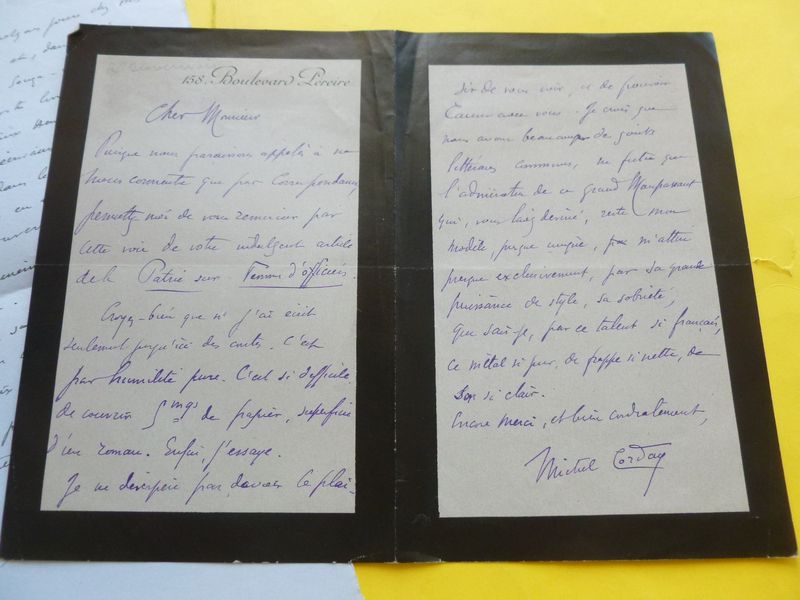 158. Boulevard Pereire
Cher Monsieur
Puisque nous paraissons appelés à ne
nous connaître que par correspondance,
permettez moi de vous remercier par
cette voie de votre indulgent article
de la Patrie sur Femmes d'officiers.
Croyez-bien que si j'ai écrit
seulement jusqu'ici des contes. C'est
par humilité pure. C'est si difficile
de couvrir 5 mqs de papier, superficie
d'un roman. Enfin, j'essaye.
Je ne désespère pas d'avoir le plai-
sir de vous voir, et de pouvoir
causer avec vous. Je crois que
nous avons beaucoup de goûts
littéraires communs, ne fut-ce que
l'admiration de ce grand Maupassant
qui, vous l'avez deviné, reste mon
modèle, presque unique, m'attire
presque exclusivement, par sa grande
puissance de style, sa sobriété,
que sais-je, par ce talent si français,
ce métal si pur, de frappe si nette, de
son si clair.
Encore merci, et bien cordialement,
Michel Corday